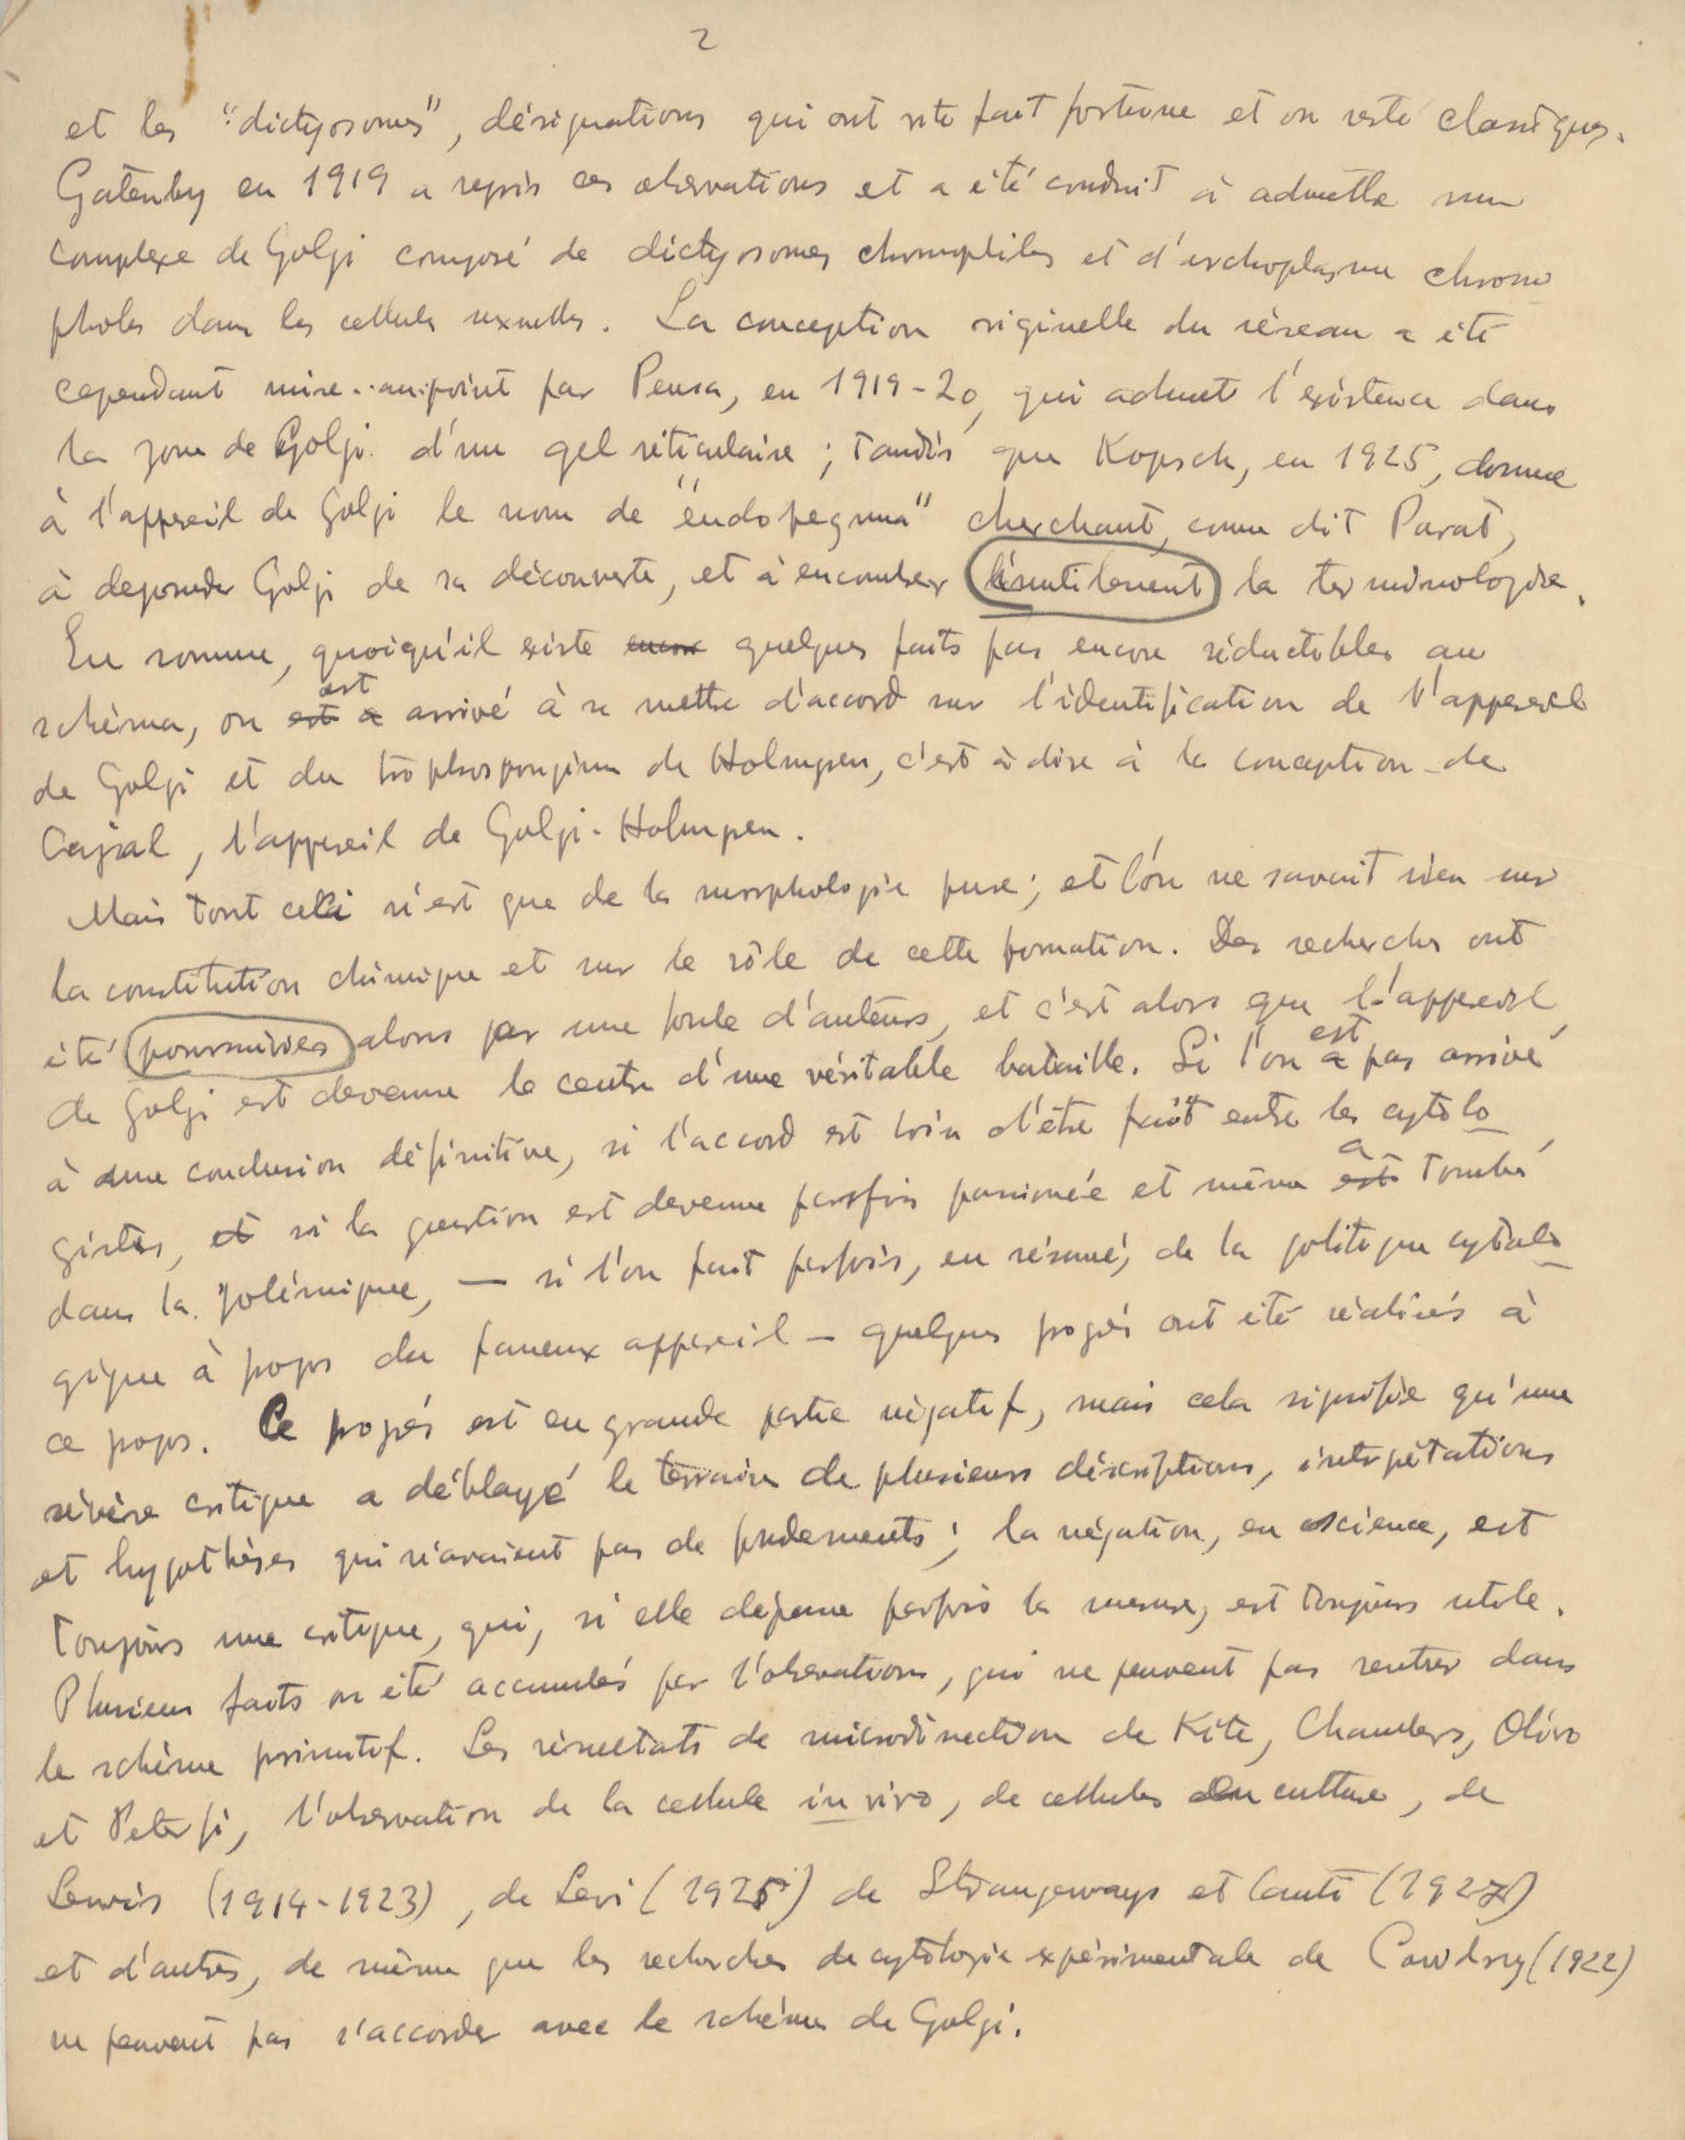 2
et les "dictyosomes", désignations qui ont vite fait fortune et on resté classiques.
Gatenby en 1919 a repris ces observations et a été conduit à admettre un
complexe de Golgi composé de dictyosomes chromophiles et d'archoplasme chromo
phobes dans les cellules sexuelles. La conception originelle du réseau a été
cependant mise au point par Pensa, en 1919-20, qui admet l'existence dans
la zone de Golgi d'un gel réticulaire ; tandis que Kopsch, en 1925, donne
à l'appareil de Golgi le nom de "endopegma" cherchant, comme dit Parat,
à deposseder Golgi de sa découverte, et à encombrer inutilement la terminologie.
En somme, quoiqu'il existe encore quelques faits pas encore réductibles au
schéma, on est arrivé à se mettre d'accord sur l'identification de l'appareil
de Golgi et du trophospongium de Holmgren, c'est à dire à la conception de
Cajal, l'appareil de Golgi-Holmgren.
Mais tout cela n'est que de la morphologie pure ; et l'on ne savait rien sur
la constitution chimique et sur le rôle de cette formation. Des recherches ont
été poursuivies alors par une foule d'auteurs, et c'est alors que l'appareil
de Golgi est devenu le centre d'une véritable bataille. Si l'on est pas arrivé
à une conclusion définitive, si l'accord est loin d'être fait entre les cytolo
gistes, et si la question est devenue parfois passionée et même a tombé
dans la polémique, — si l'on fait parfois, en résumé, de la politique cytolo
gique à propos du fameux appareil — quelques progrés ont été réalisés à
ce propos. Ce progrés est en grande partie négatif, mais cela signifie qu'une
sévère critique a déblayé le terrain de plusieurs déscriptions, interprétations
et hypothèses qui n'avaient pas de fondements ; la négation, en science, est
toujours une critique, qui, si elle dépasse parfois la mesure, est toujours utile.
Plusieurs faits on été accumulés par l'observations, qui ne peuvent pas rentrer dans
le schème primitif. Les résultats de microdissection de Kite, Chambers, Olivo
et Peterfi, l'observation de la cellule in vivo, de cellules en culture, de
Lewis (1914-1923), de Levi (1925) de Strangeways et Canti (1927)
et d'autres, de même que les recherches de cytologie expérimentale de Cowdry (1922)
ne peuvent pas s'accorder avec le schéma de Golgi.